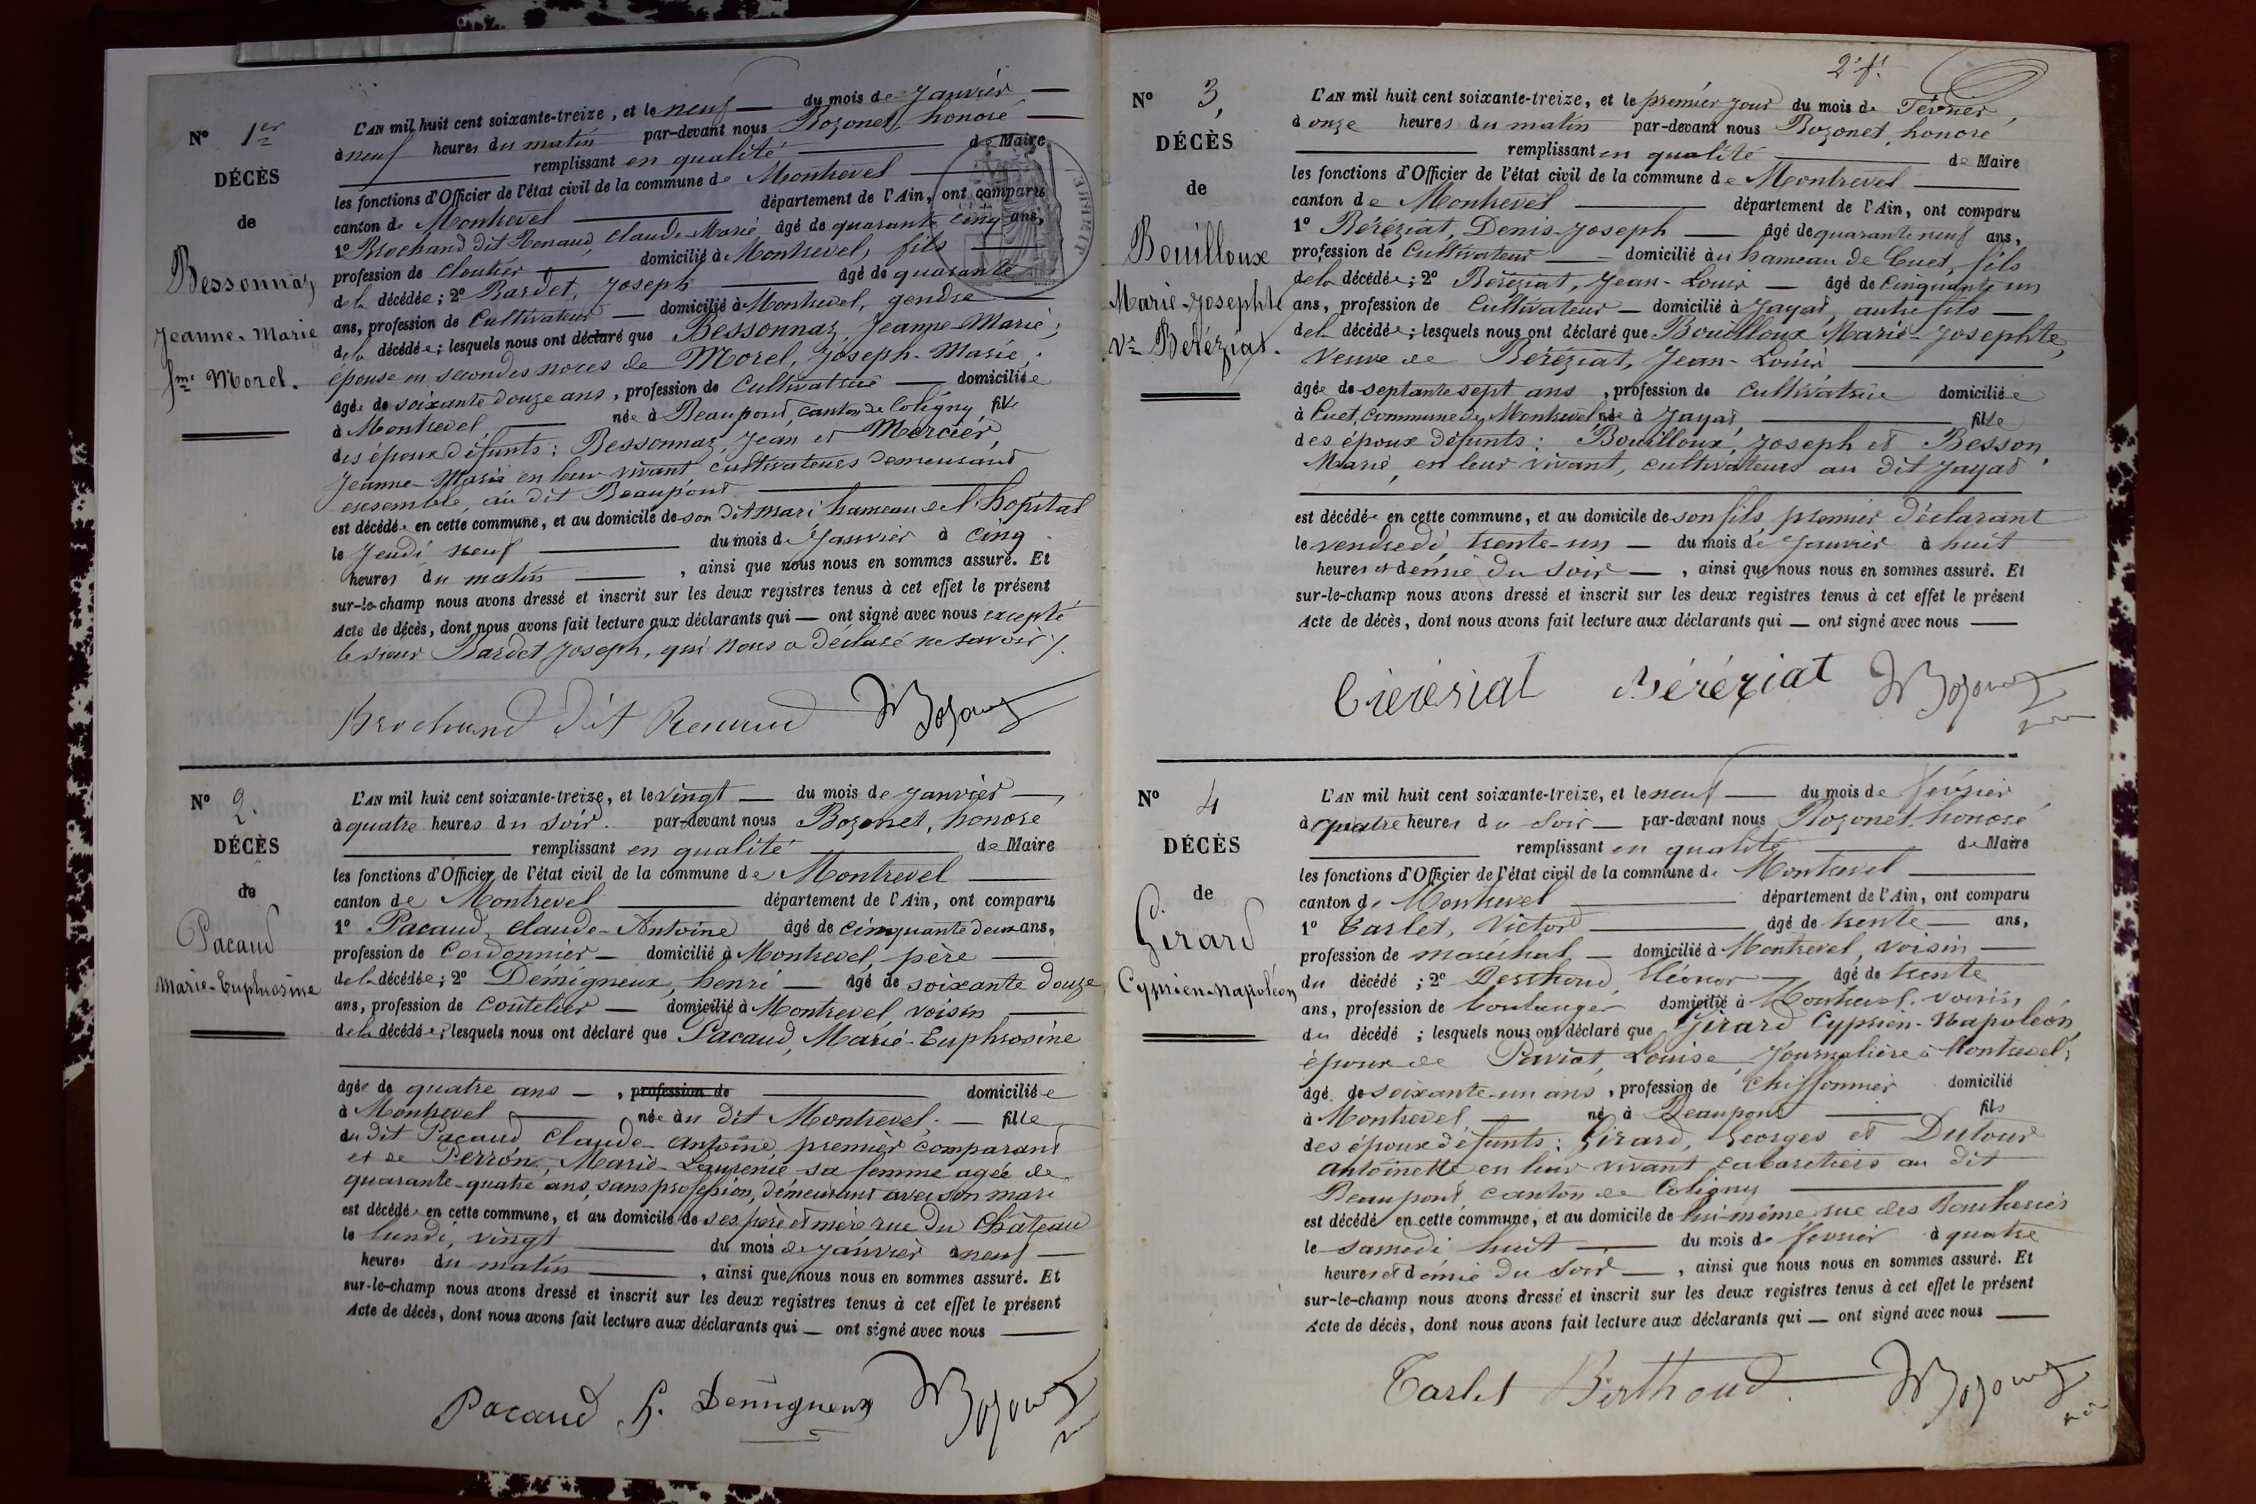 N° 1er
DÉCÈS
de
Bessonnaz
Jeanne-Marie
fme Morel.
L'AN mil huit cent soixante-treize, et le neuf — du mois de Janvier —
à neuf heures du matin par-devant nous Bozonet, honoré —
remplissant en qualité — de Maire
les fonctions d'Officier de l'état civil de la commune de Montrevel —
canton de Montrevel — département de l'Ain, ont comparu
1° Brochand dit Renaud, Claude-Marie âgé de quarante cinq ans,
profession de cloutier — domicilié à Montrevel, fils —
de la décédée; 2° Bardet, Joseph — âgé de quarante —
ans, profession de Cultivateur — domicilié à Montrevel, gendre —
de la décédée; lesquels nous ont déclaré que Bessonnaz, Jeanne-Marie,
épouse en secondes noces de Morel, Joseph-Marie,
âgée de soixante douze ans, profession de Cultivatrice — domiciliée
à Montrevel — née à Beaupont, canton de Coligny fille
des époux défunts: Bessonnaz, Jean et Mercier,
Jeanne-Marie en leur vivant cultivateurs demeurant
ensemble, au dit Beaupont —
est décédée en cette commune, et au domicile de son dit mari hameau de l'hopital
le Jeudi neuf — du mois de Janvier à cinq
heures du matin — , ainsi que nous nous en sommes assuré. Et
sur-le-champ nous avons dressé et inscrit sur les deux registres tenus à cet effet le présent
Acte de décès, dont nous avons fait lecture aux déclarants qui — ont signé avec nous excepté
le sieur Bardet Joseph, qui nous a déclaré ne savoir
Brochand dit Renaud Bozonet
N° 2.
DÉCÈS
de
Pacaud
Marie-Euphrosine
L'AN mil huit cent soixante-treize, et le vingt — du mois de Janvier —,
à quatre heures du soir. par-devant nous Bozonet, honoré
remplissant en qualité — de Maire
les fonctions d'Officier de l'état civil de la commune de Montrevel —
canton de Montrevel — département de l'Ain, ont comparu
1° Pacaud, Claude-Antoine âgé de cinquante deux ans,
profession de Cordonnier — domicilié à Montrevel, père —
de la décédée; 2° Démigneux, henri — âgé de soixante douze
ans, profession de coutelier — domicilié à Montrevel, voisin —
de la décédée; lesquels nous ont déclaré que Pacaud, Marie-Euphrosine
âgée de quatre ans —, profession de — domiciliée
à Montrevel — née au dit Montrevel. — fille
du dit Pacaud Claude-Antoine, premier comparant
et de Perron, Marie-Laurence sa femme agée de
quarante-quatre ans, sans profession, demeurant avec son mari
est décédée en cette commune, et au domicile de ses père et mère rue du Château
le lundi, vingt — du mois de Janvier à neuf —
heures du matin — , ainsi que nous nous en sommes assuré. Et
sur-le-champ nous avons dressé et inscrit sur les deux registres tenus à cet effet le présent
Acte de décès, dont nous avons fait lecture aux déclarants qui — ont signé avec nous —
Pacaud h. Demigneux Bozonet
2e ft.
N° 3,
DÉCÈS
de
Bouilloux
Marie-Josephte
Ve Béréziat.
L'AN mil huit cent soixante-treize, et le premier jour du mois de Février,
à onze heures du matin par-devant nous Bozonet, honoré
remplissant en qualité — de Maire
les fonctions d'Officier de l'état civil de la commune de Montrevel —
canton de Montrevel — département de l'Ain, ont comparu
1° Béréziat, Denis-Joseph — âgé de quarante neuf ans,
profession de Cultivateur — domicilié au hameau de Cuet, fils
de la décédée; 2° Béréziat, Jean-Louis — âgé de cinquante un
ans, profession de Cultivateur — domicilié à Jayat, autre fils —
de la décédée; lesquels nous ont déclaré que Bouilloux Marie-Josephte,
Veuve de Béréziat, Jean-Louis —
âgée de septante sept ans, profession de cultivatrice domiciliée
à Cuet, Commune de Montrevel née à Jayat — fille
des époux défunts: Bouilloux, Joseph et Besson,
Marie, en leur vivant, cultivateurs au dit Jayat
est décédée en cette commune, et au domicile de son fils premier déclarant
le vendredi, trente-un — du mois de Janvier à huit
heures et demie du soir — , ainsi que nous nous en sommes assuré. Et
sur-le-champ nous avons dressé et inscrit sur les deux registres tenus à cet effet le présent
Acte de décès, dont nous avons fait lecture aux déclarants qui — ont signé avec nous —
Béréziat Béréziat Bozonet
N° 4
DÉCÈS
de
Girard
Cyprien-Napoléon
L'AN mil huit cent soixante-treize, et le neuf — du mois de février,
à quatre heures du soir — par-devant nous Bozonet, honoré
remplissant en qualité — de Maire
les fonctions d'Officier de l'état civil de la commune de Montrevel —
canton de Montrevel — département de l'Ain, ont comparu
1° Carlet, Victor — âgé de trente — ans,
profession de maréchal — domicilié à Montrevel, voisin —
du décédé; 2° Berthoud, Eléonor — âgé de trente
ans, profession de boulanger domicilié à Montrevel. voisin
du décédé; lesquels nous ont déclaré que Girard Cyprien-Napoléon,
époux de Paviot, Louise, Journalière à Montrevel,
âgé de soixante-un ans, profession de Chiffonnier domicilié
à Montrevel — né à Beaupont — fils
des époux défunts: Girard, Georges et Dutour
Antoinette en leur vivant cabaretiers au dit
Beaupont canton de Coligny —
est décédé en cette commune, et au domicile de lui-même rue des Boucheries
le samedi huit — du mois de février à quatre
heures et demie du soir — , ainsi que nous nous en sommes assuré. Et
sur-le-champ nous avons dressé et inscrit sur les deux registres tenus à cet effet le présent
Acte de décès, dont nous avons fait lecture aux déclarants qui — ont signé avec nous —
Carlet Berthoud Bozonet